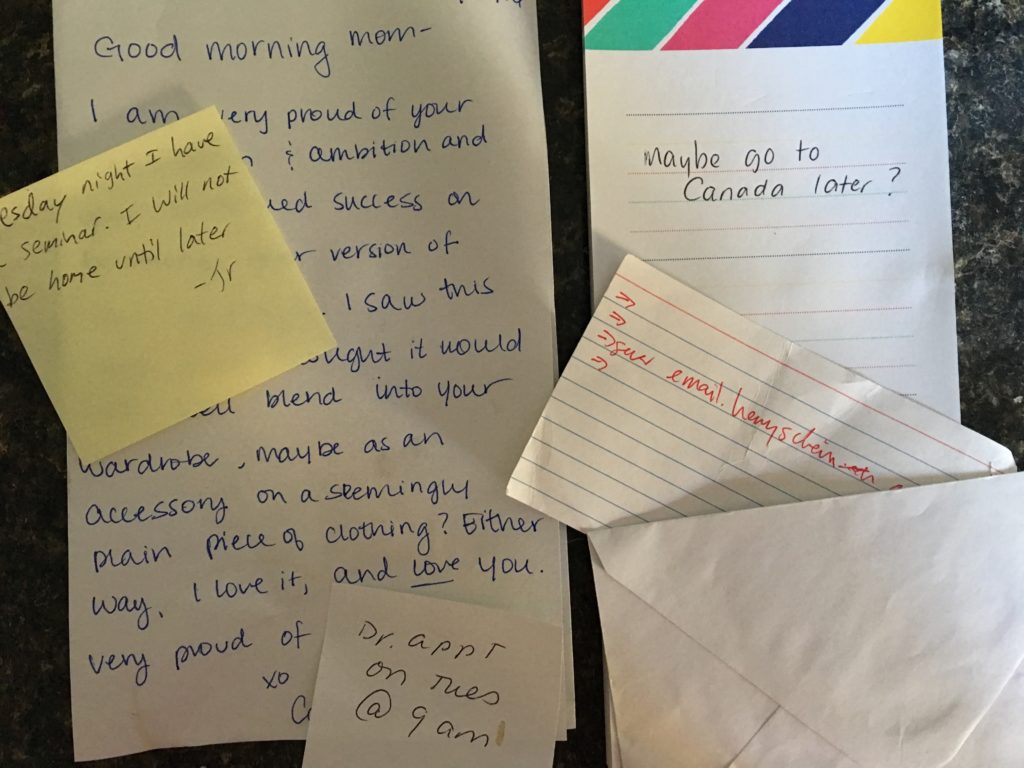 Good morning mom-
I am very proud of your
& ambition and
success on
version of
I saw this
it would
blend into your
wardrobe, maybe as an
accessory on a seemingly
plain piece of clothing? Either
way, I love it, and love you.
very proud of
xo
night I have
seminar. I will not
be home until later
-Jr
Dr. appt
on Tues
@ 9 am
maybe go to
Canada later?
⇒
⇒
⇒ email.henryschein
⇒